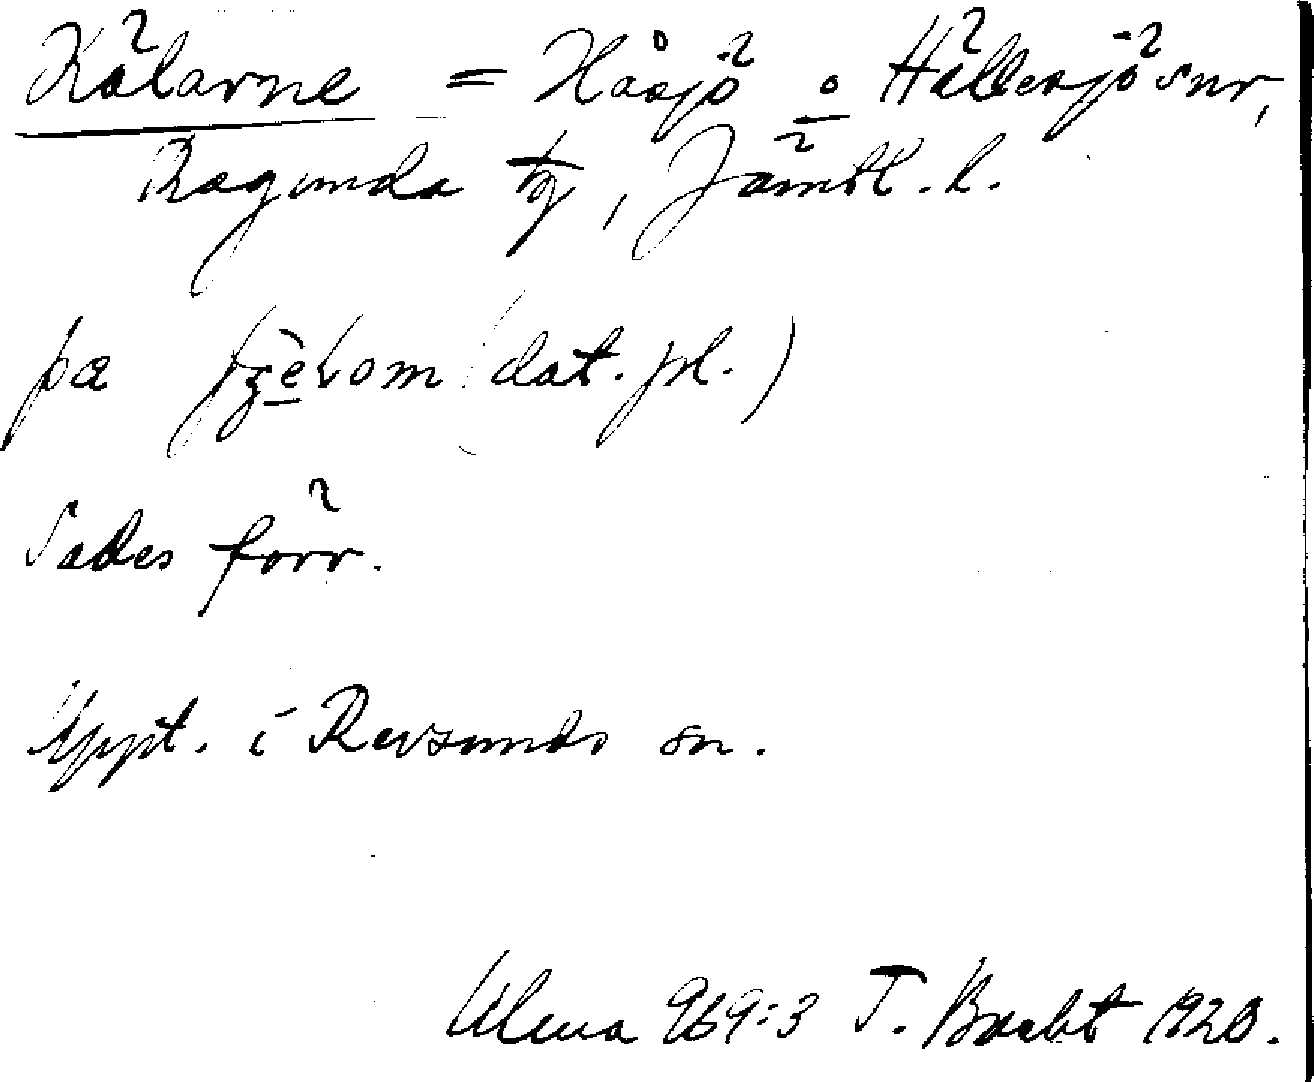 Kälarne = Håsjö o Hällesjö snr,
Ragunda tg, Jämtl. l.
pæ (dat. pl.)
Sades förr.
Uppt. i Revsunds sn.
Ulma 969:3 T. Bucht 1920.